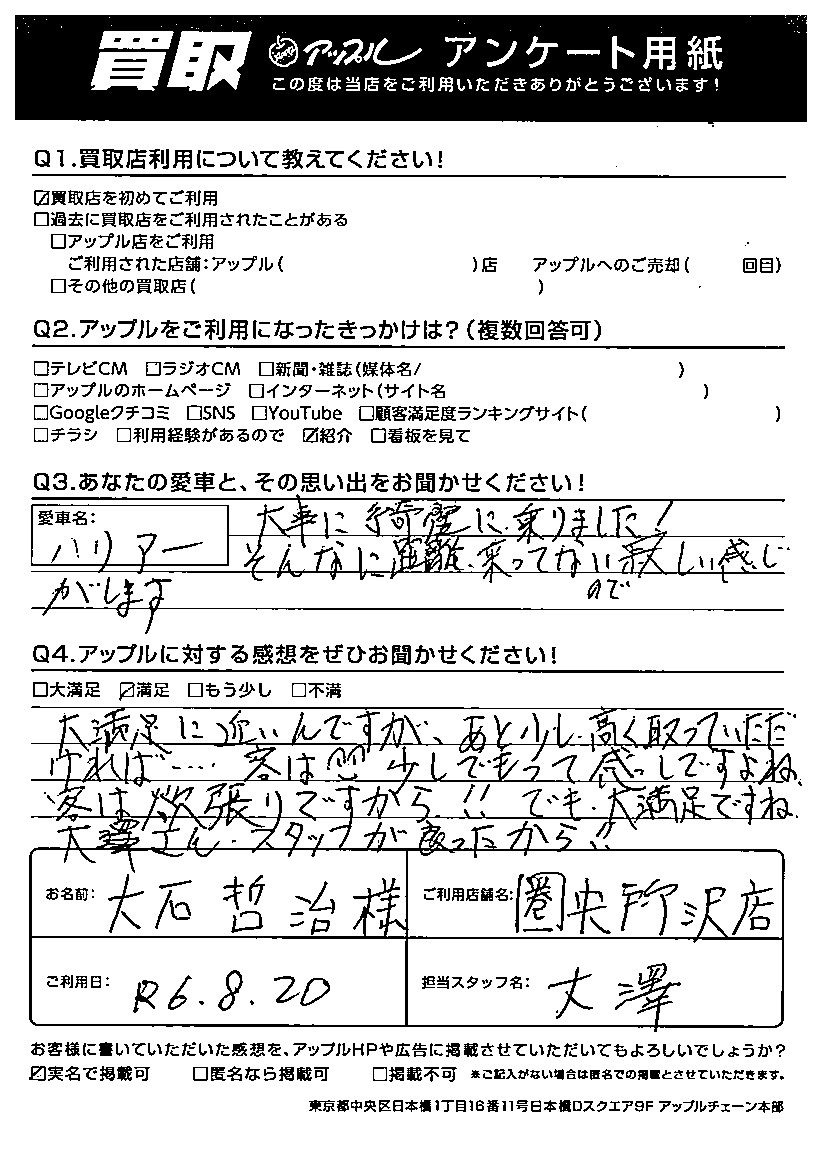 買取 アップル アンケート用紙
この度は当店をご利用いただきありがとうございます!
Q1.買取店利用について教えてください!
☑買取店を初めてご利用
□過去に買取店をご利用されたことがある
□アップル店をご利用
ご利用された店舗:アップル( )店 アップルへのご売却( 回目)
□その他の買取店( )
Q2.アップルをご利用になったきっかけは?(複数回答可)
□テレビCM □ラジオCM □新聞・雑誌(媒体名/ )
□アップルのホームページ □インターネット(サイト名 )
□Googleクチコミ □SNS □YouTube □顧客満足度ランキングサイト( )
□チラシ □利用経験があるので ☑紹介 □看板を見て
Q3.あなたの愛車と、その思い出をお聞かせください!
愛車名:
ハリアー
大事に綺麗に乗りました!
そんなに距離、乗ってない寂しい感じ
ので
がします
Q4.アップルに対する感想をぜひお聞かせください!
□大満足 ☑満足 □もう少し □不満
大満足に近いんですが、あと少し高く取っていただ
ければ…… 客は 少しでもって感じですよね、
客は欲張りですから!! でも、大満足ですね
大澤さん、スタッフが良ったから!!
お名前: 大石哲治様 ご利用店舗名: 圏央所沢店
ご利用日: R6.8.20 担当スタッフ名: 大澤
お客様に書いていただいた感想を、アップルHPや広告に掲載させていただいてもよろしいでしょうか?
☑実名で掲載可 □匿名なら掲載可 □掲載不可 ※ご記入がない場合は匿名での掲載とさせていただきます。
東京都中央区日本橋1丁目16番11号日本橋Dスクエア9F アップルチェーン本部